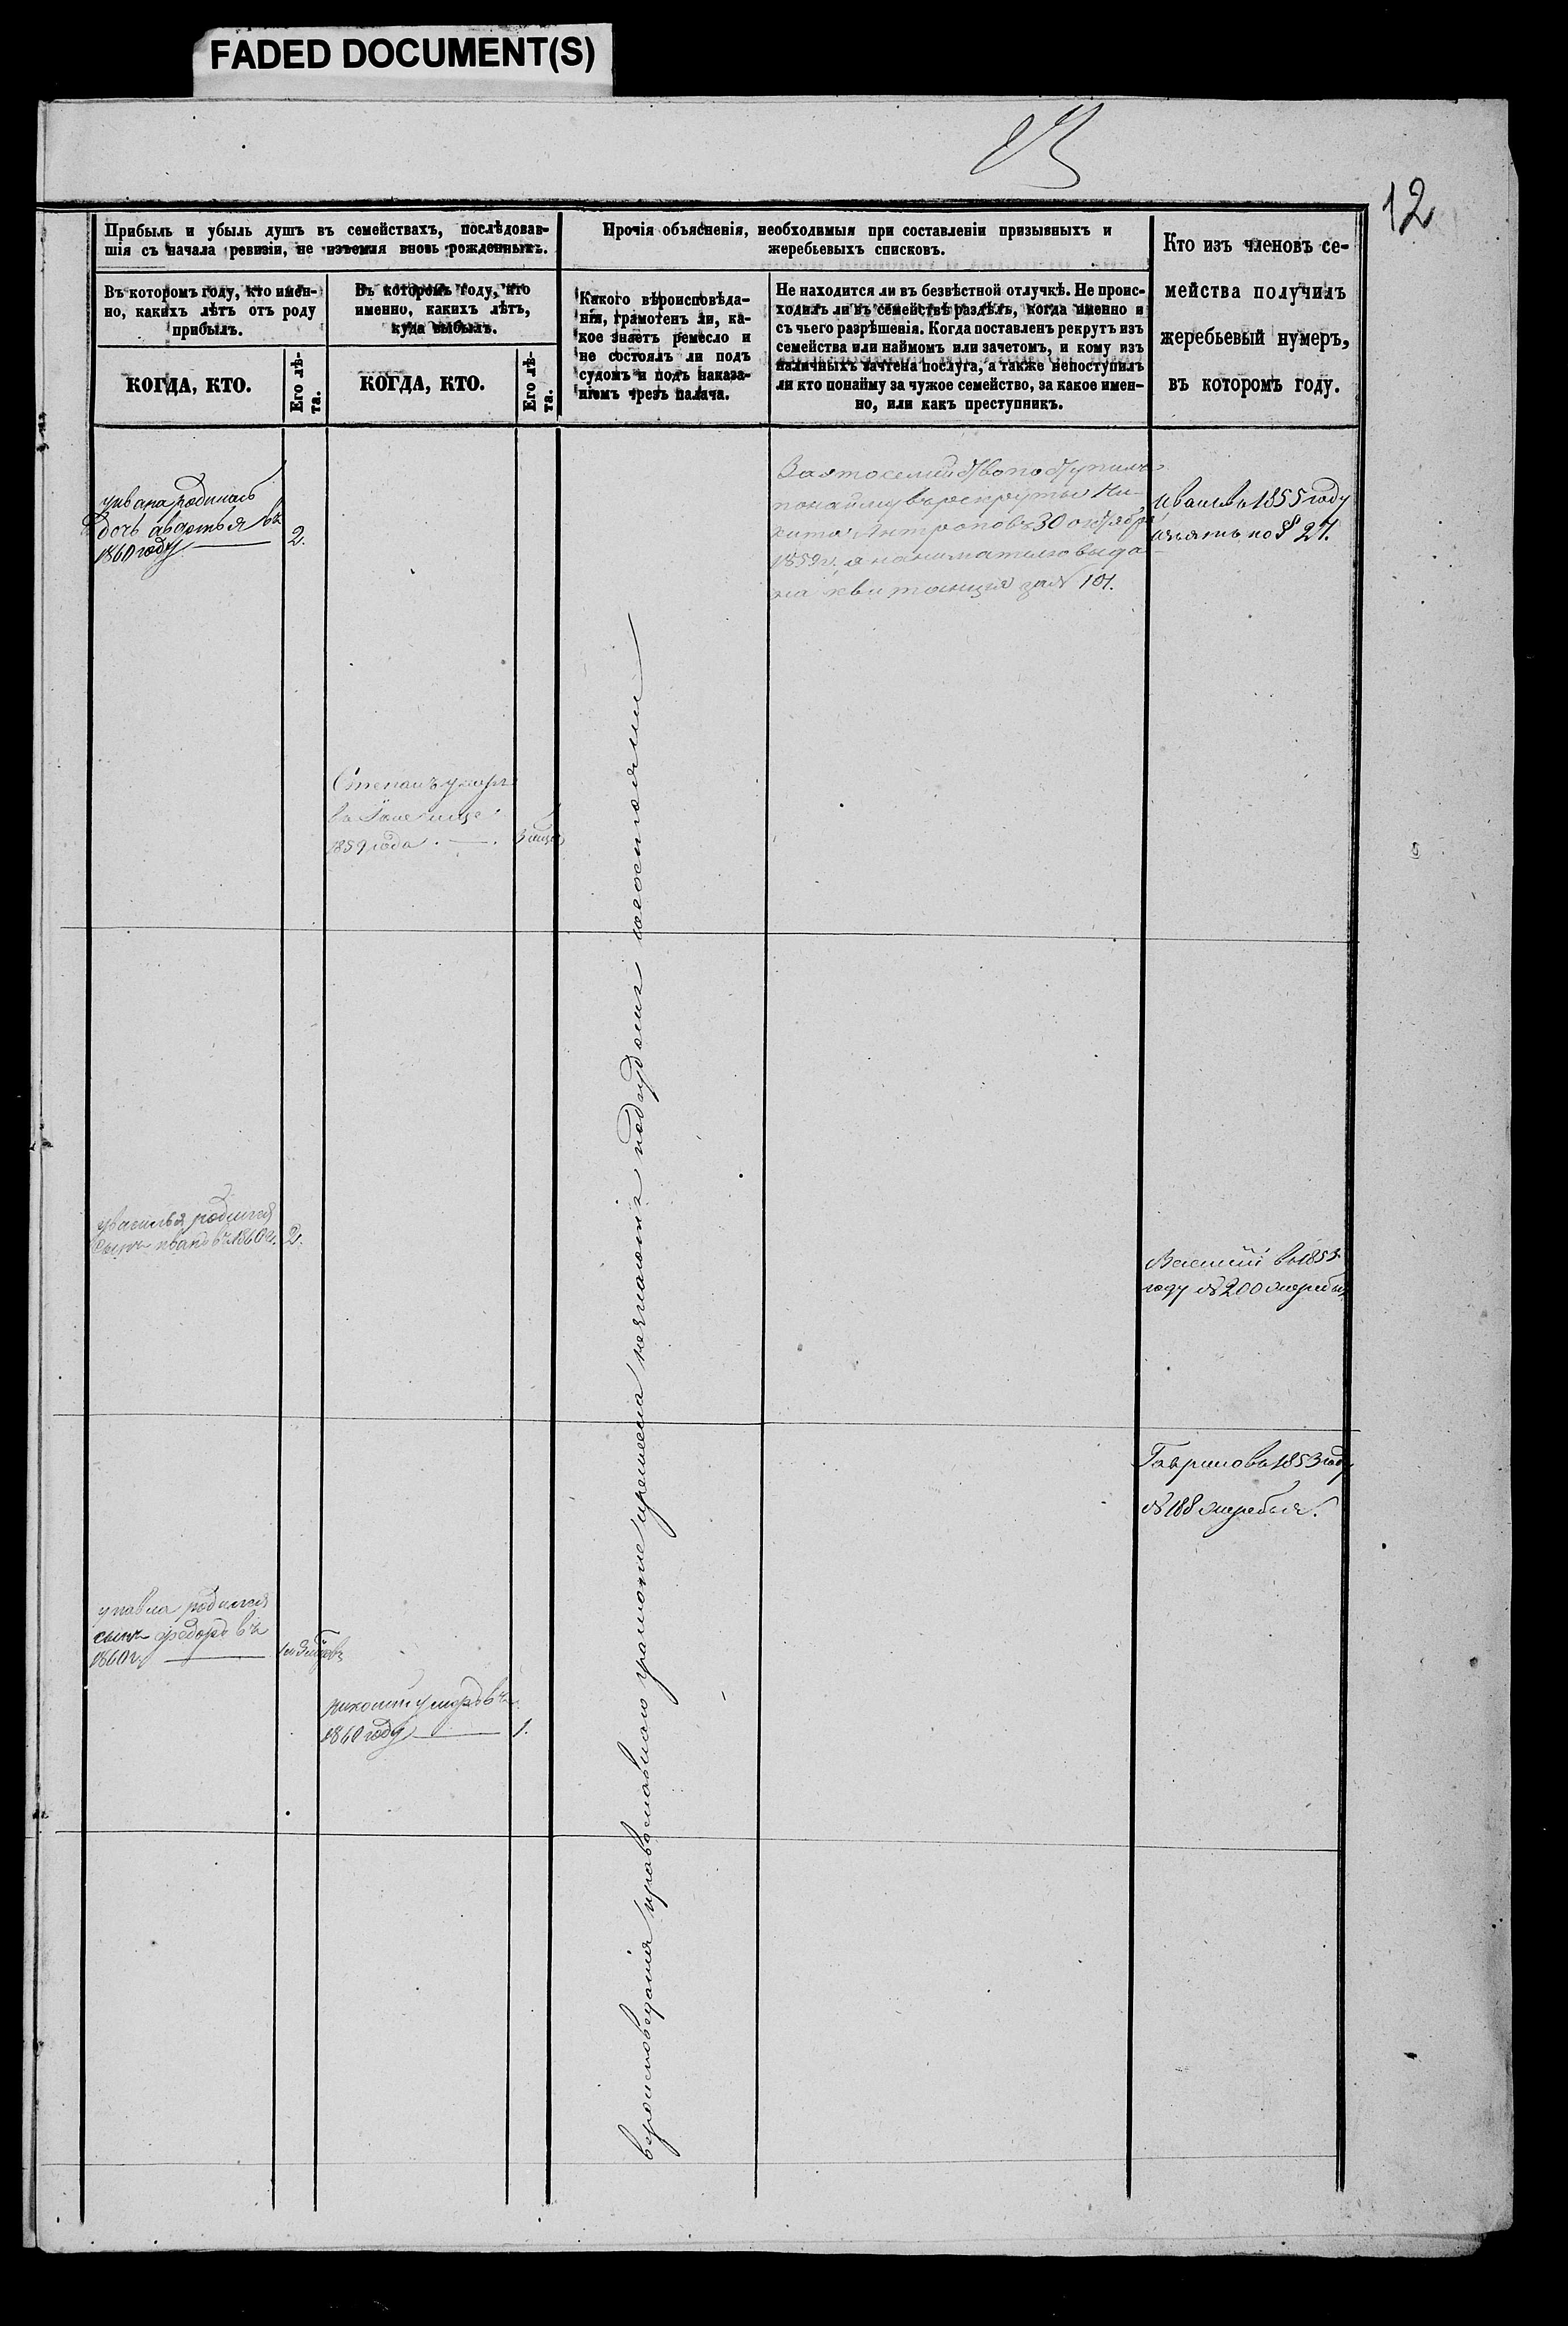 FADED DOCUMENT(S)
12
Прибыль и убыль душъ въ семействахъ, послѣдовав-
шія съ начала ревизіи, не изъемля вновь рожденныхъ.
Прочія объясненія, необходимыя при составленіи призывныхъ и
жеребьевыхъ списковъ.
Кто изъ членовъ се-
мейства получилъ
жеребьевый нумеръ,
въ которомъ году.
Въ которомъ году, кто имен-
но, какихъ лѣтъ отъ роду
прибылъ.
Въ которомъ году, кто
именно, какихъ лѣтъ,
куда выбылъ.
Какого вѣроисповѣда-
нія, грамотенъ ли, ка-
кое знаетъ ремесло и
не состоялъ ли подъ
судомъ и подъ наказа-
ніемъ чрезъ палача.
Не находится ли въ безвѣстной отлучкѣ. Не проис-
ходилъ ли въ семействѣ раздѣлъ, когда именно и
съ чьего разрѣшенія. Когда поставленъ рекрутъ изъ
семейства или наймомъ или зачетомъ, и кому изъ
наличныхъ зачтена послуга, а также непоступилъ
ли кто понайму за чужое семейство, за какое имен-
но, или какъ преступникъ.
КОГДА, КТО.
Его лѣ-
та.
КОГДА, КТО.
Его лѣ-
та.
уивана родилась
дочь авдотья въ
1860 году
2.
За это семейство поступилъ
понайму въ рекруты Ни-
кита Антроповъ 30 октября
1859 г, а нанимателю выда
на квитанція за № 101.
Иванъ въ 1855 году
изъятъ по § 27.
Степанъ умеръ
1859 года
3
увасилья родился
сынъ иванъ въ 1860 г.
2.
Василій въ 1853
году № 200 жеребья
Гаврило въ 1853 году
№ 188 жеребья.
упавла родился
сынъ федоръ въ
1860 г
николай умеръ въ
1860 году
1.
вероисповеданія православного грамоте ремесла незнаютъ подсудомъ несостояли